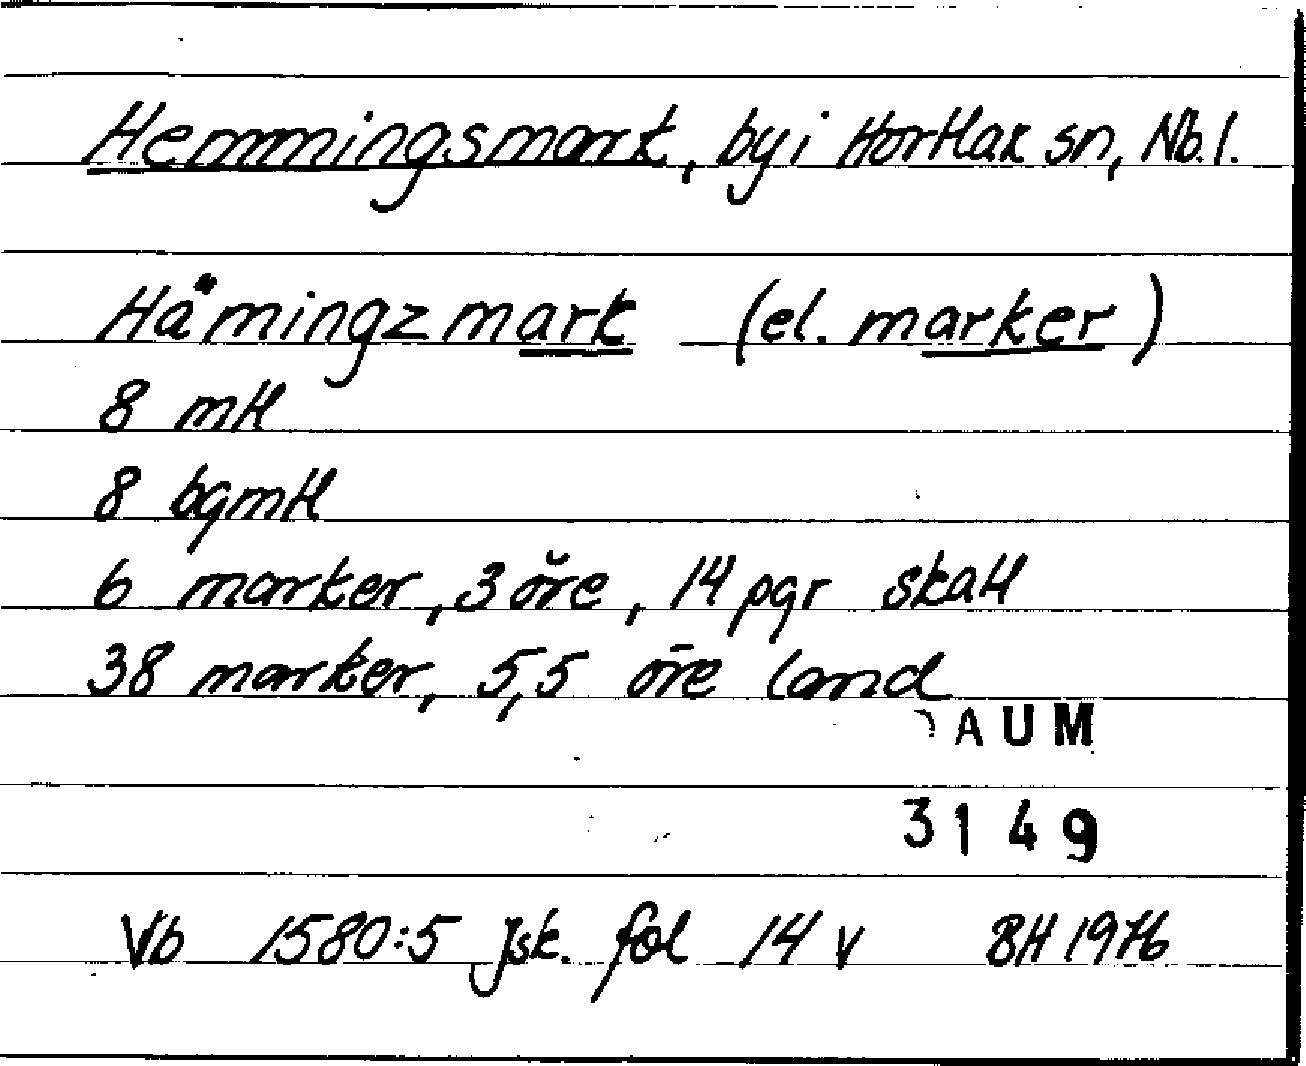 Hemmingsmark, by i Hortlax sn, Nb.l.
Hämingzmark (el. marker)
8 mtl
8 bgmtl
6 marker, 3 öre, 14 pgr skatt
38 marker, 5,5 öre land
AUM
3149
Vb 1580:5 Jsk. fol 14 v BH 1976